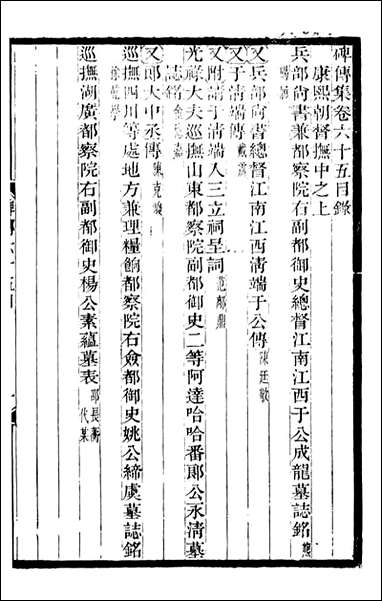 碑傳集卷六十五目錄
康熙朝督撫中之上
兵部尚書兼都察院右副都御史總督江南江西于公成龍墓誌銘
又兵部尚書總督江南江西清端于公傳 陳廷敬
又于清端傳 戴震
又附請于清端入三立祠呈詞 范鄗鼎
光祿大夫巡撫山東都察院副都御史二等阿達哈哈番郎公永清墓
誌銘
又郎大中丞傳 陳克
巡撫四川等處地方兼理糧餉都察院右僉都御史姚公締虞墓誌銘
巡撫湖廣都察院右副都御史楊公素蘊墓表 邵長蘅代某